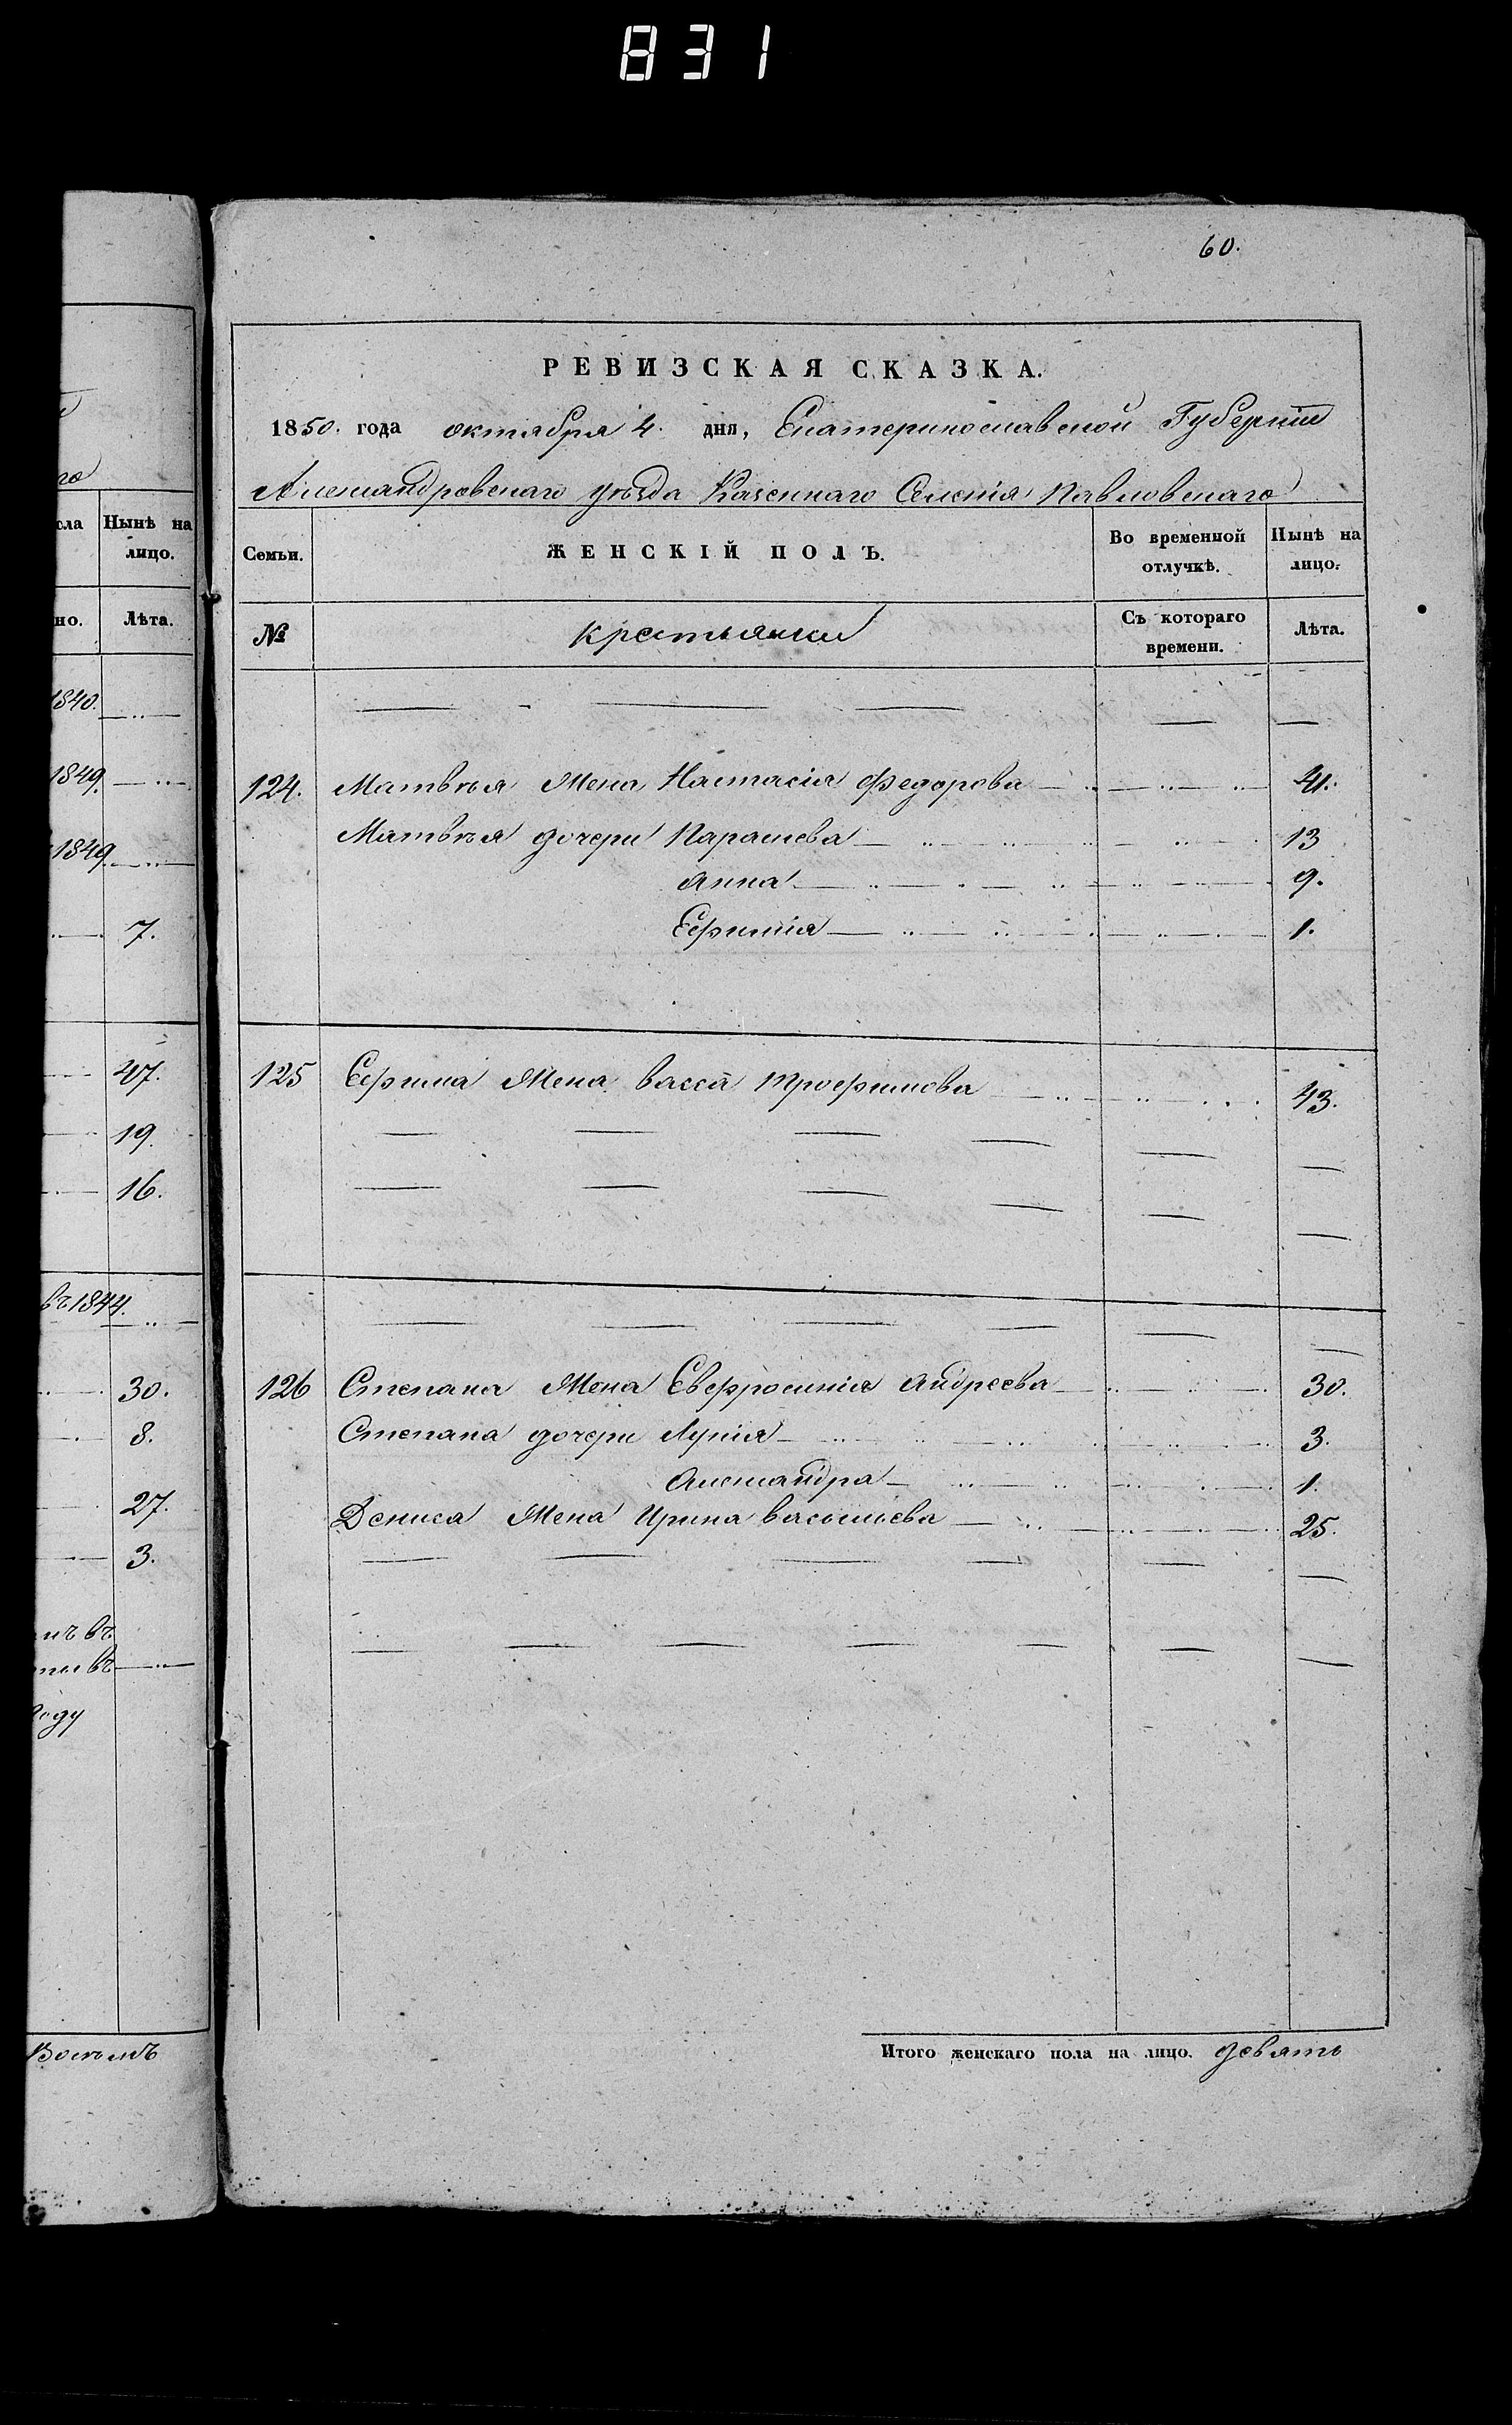 831
60.
РЕВИЗСКАЯ СКАЗКА.
1850. года октября 4. дня, Екатеринославской Губерніи
Александровскаго уѣзда Казеннаго Селенія Павловскаго
Семьи.
ЖЕНСКІЙ ПОЛЪ.
Во временной отлучкѣ.
Нынѣ на лицо.
№
крестьянки
Съ котораго времени.
Лѣта.
124. Матвѣя Жена Настасія Федорова 41.
Матвѣя дочери Парасцева 13
Анна 9.
Ефимія 1.
125 Ефима Жена Васса Трофимова 43.
126 Степана Жена Евфросинія Андреева 30.
Степана дочери Лукія 3.
Александра 1.
Дениса Жена Ирина Васильева 25.
Итого женскаго пола на лицо. девять
Нынѣ на
лицо.
Лѣта.
1840.
1849.
1849.
7.
47.
19.
16.
въ 1844.
30.
8.
27.
3.
году
Восемь